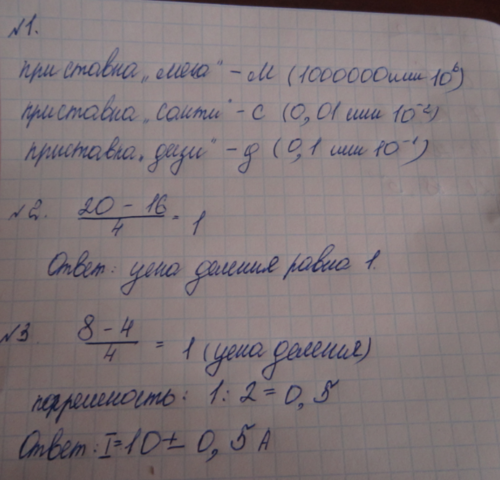 №1.
приставка „мега" - М (1000000 или 10⁶)
приставка „санти" - с (0,01 или 10⁻²)
приставка „деци" - д (0,1 или 10⁻¹)
№2. (20 - 16)/4 = 1
Ответ: цена деления равна 1.
№3 (8 - 4)/4 = 1 (цена деления)
погрешность: 1 : 2 = 0,5
Ответ: I = 10 ± 0,5 А